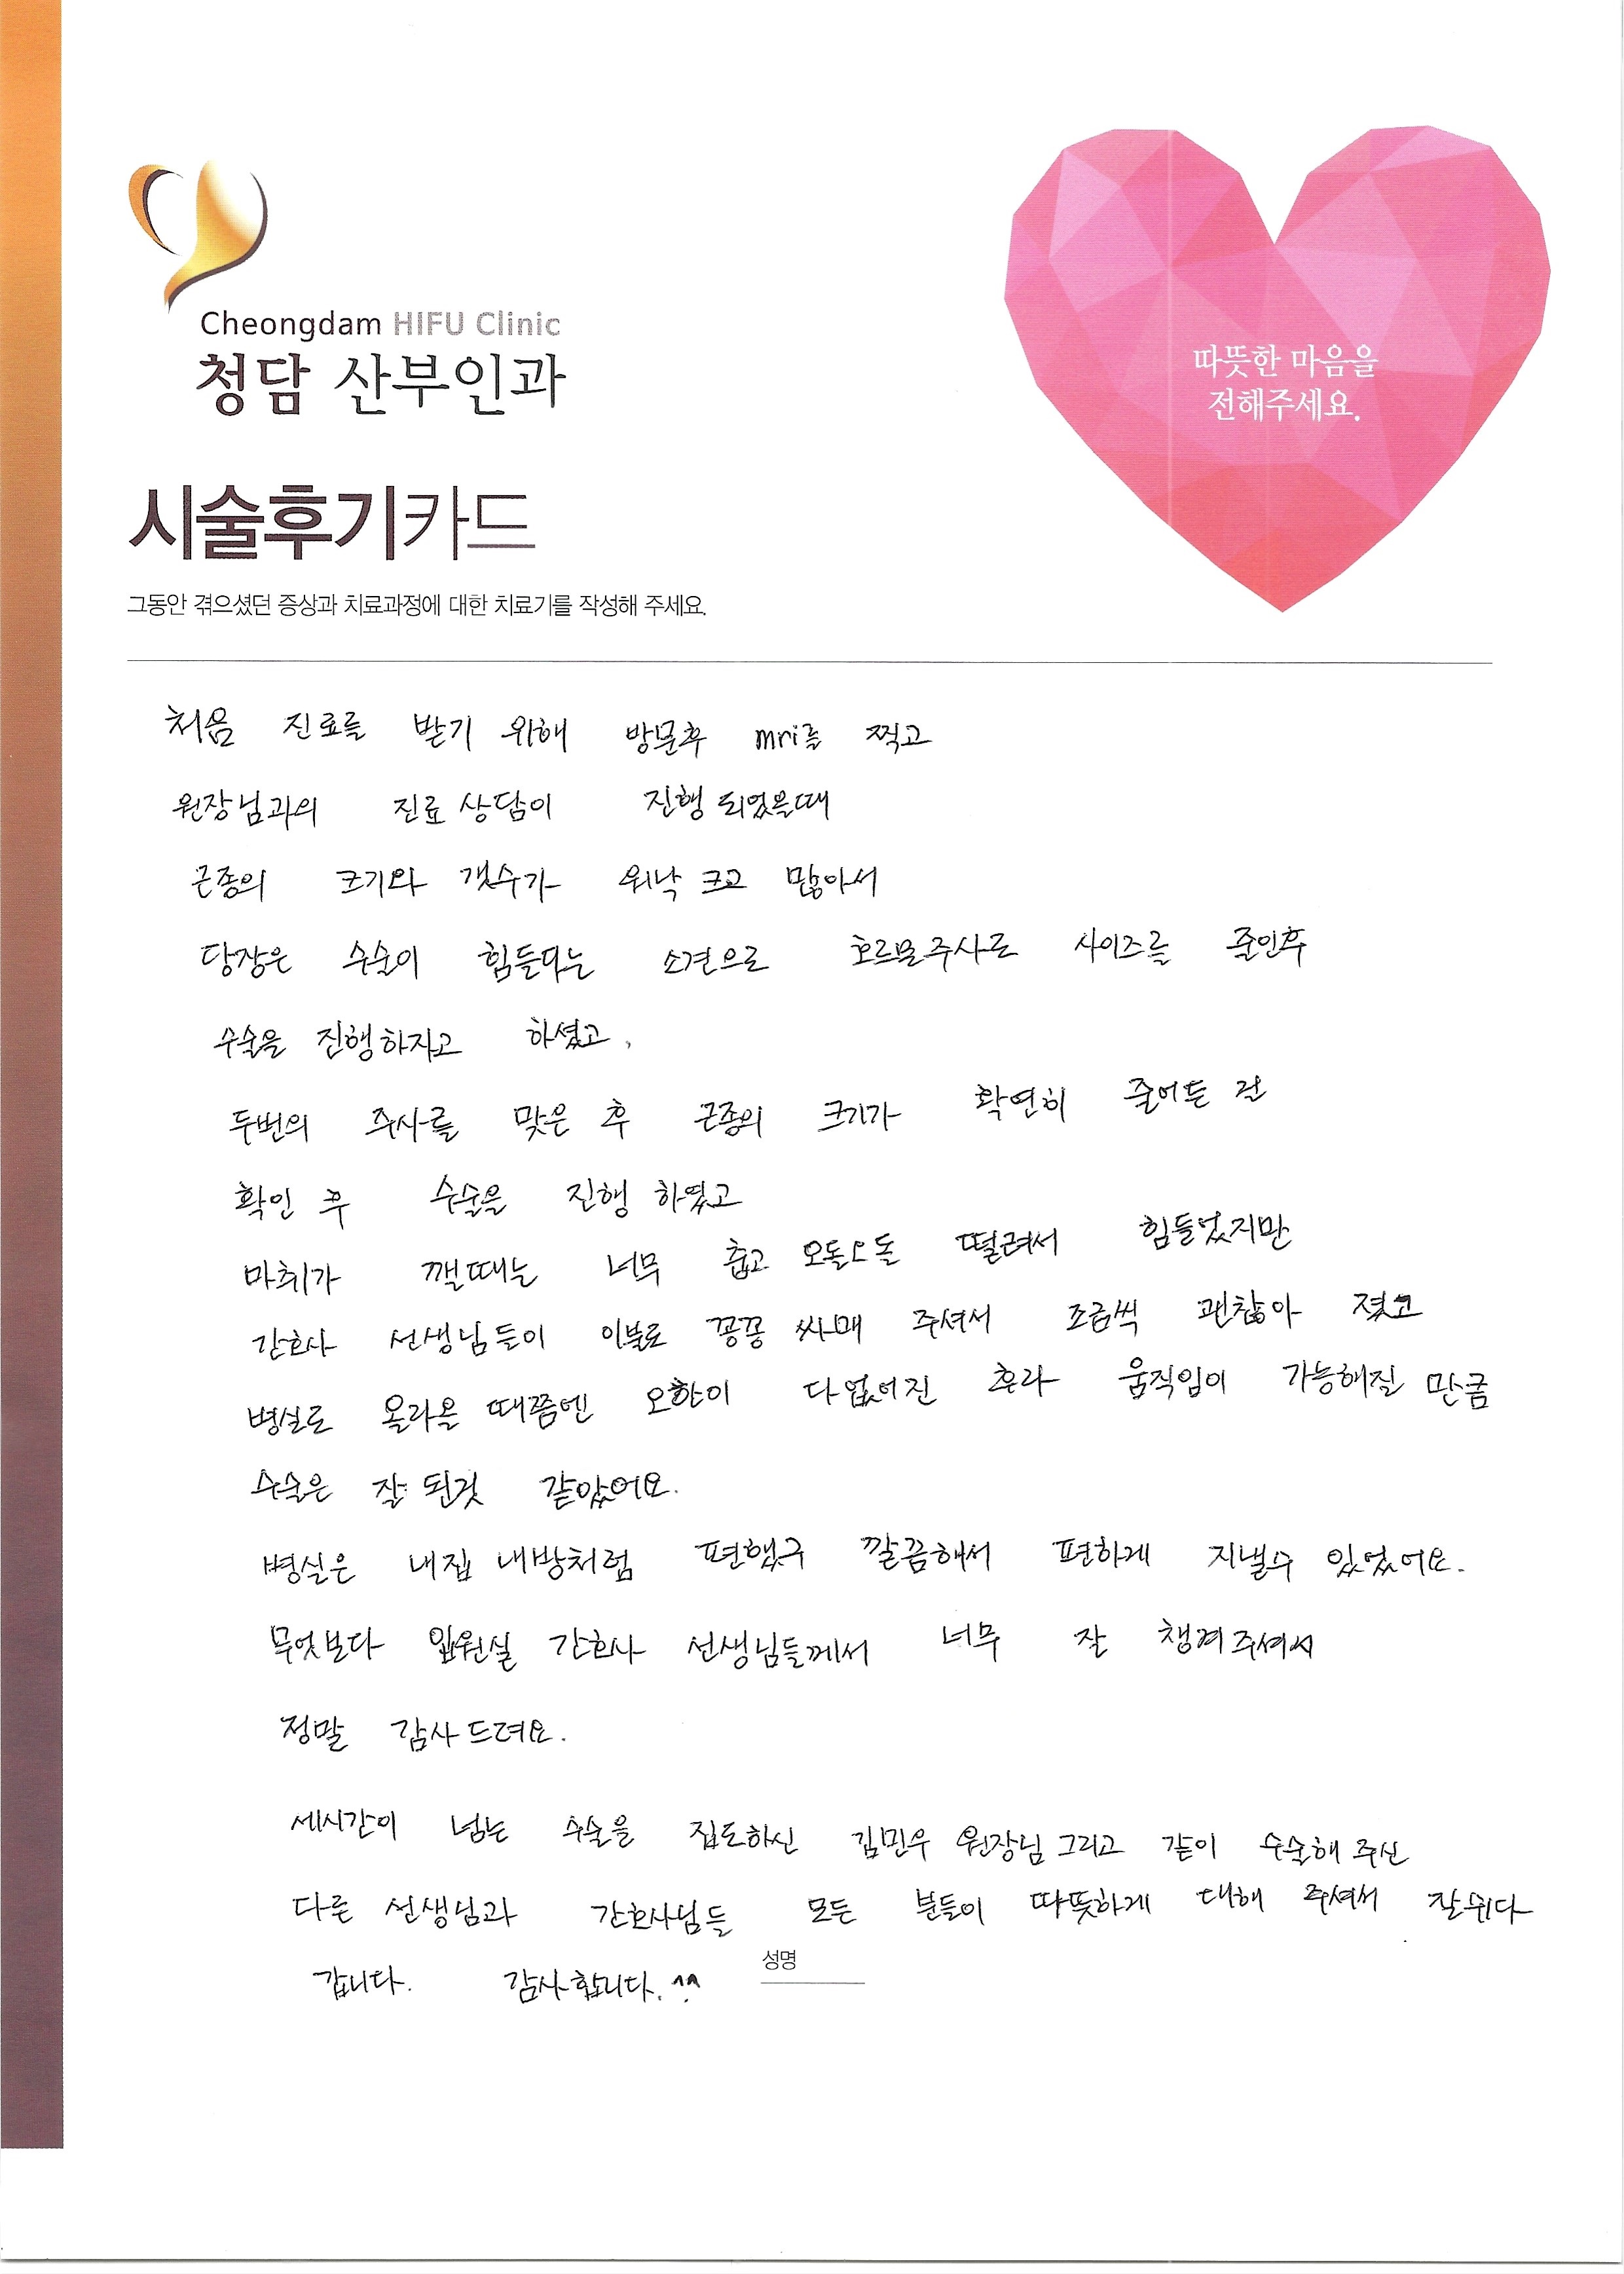 Cheongdam HIFU Clinic
청담 산부인과
따뜻한 마음을
전해주세요.
시술후기카드
그동안 겪으셨던 증상과 치료과정에 대한 치료기를 작성해 주세요.
처음 진료를 받기 위해 방문후 mri를 찍고
원장님과의 진료 상담이 진행 되었을때
근종의 크기와 갯수가 워낙 크고 많아서
당장은 수술이 힘들다는 소견으로 호르몬주사로 사이즈를 줄인후
수술을 진행하자고 하셨고,
두번의 주사를 맞은 후 근종의 크기가 확연히 줄어든 걸
확인 후 수술을 진행 하였고
마취가 깰때는 너무 춥고 오돌오돌 떨려서 힘들었지만
간호사 선생님들이 이불로 꽁꽁 싸매 주셔서 조금씩 괜찮아 졌고
병실로 올라올 때쯤엔 오한이 다 없어진 후라 움직임이 가능해질 만큼
수술은 잘 된것 같았어요.
병실은 내집 내방처럼 편했구 깔끔해서 편하게 지낼수 있었어요.
무엇보다 입원실 간호사 선생님들께서 너무 잘 챙겨주셔서
정말 감사드려요.
세시간이 넘는 수술을 집도하신 김민우 원장님 그리고 같이 수술해 주신
다른 선생님과 간호사님들 모든 분들이 따뜻하게 대해 주셔서 잘쉬다
갑니다. 감사합니다. ^^
성명